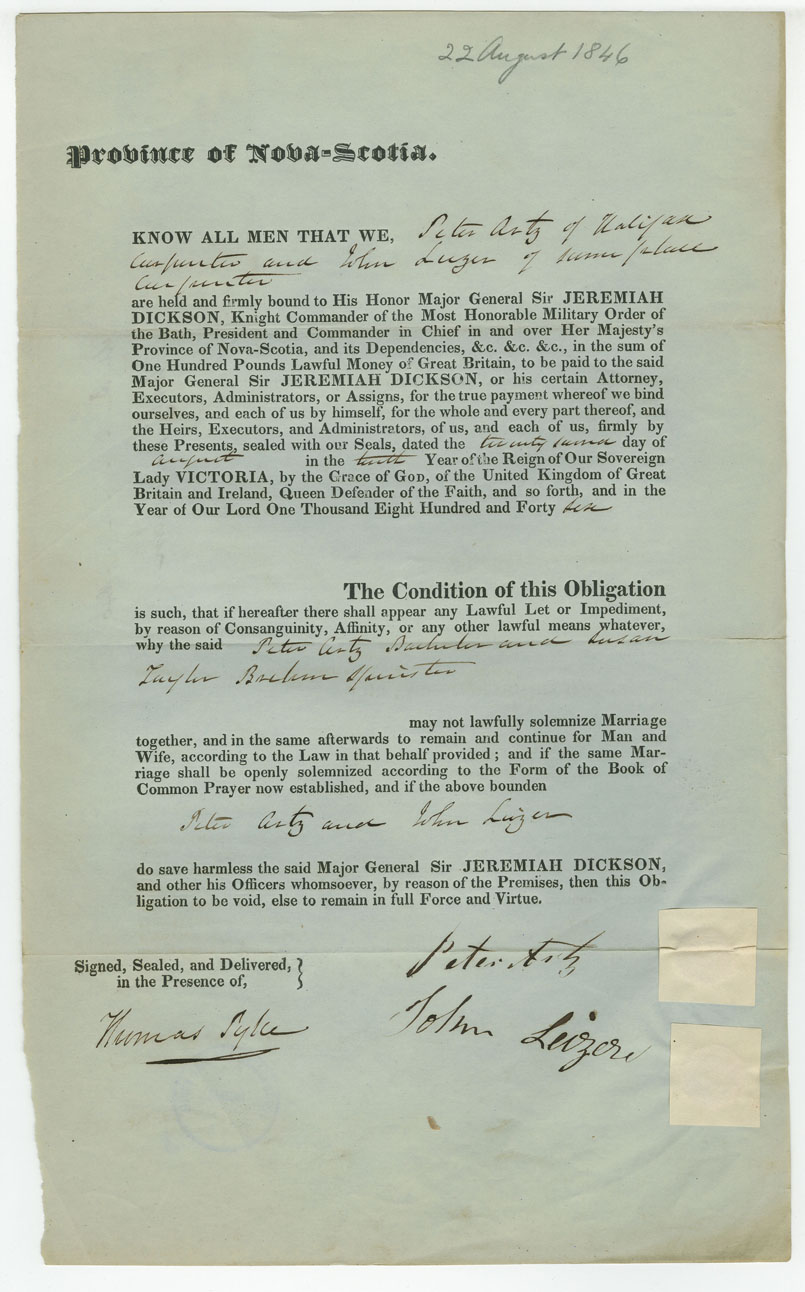 22 August 1846
Province of Nova-Scotia.
KNOW ALL MEN THAT WE, Peter Artz of Halifax
Carpenter and John Leizer of same place
Carpenter
are held and firmly bound to His Honor Major General Sir JEREMIAH
DICKSON, Knight Commander of the Most Honorable Military Order of
the Bath, President and Commander in Chief in and over Her Majesty's
Province of Nova-Scotia, and its Dependencies, &c. &c. &c., in the sum of
One Hundred Pounds Lawful Money of Great Britain, to be paid to the said
Major General Sir JEREMIAH DICKSON, or his certain Attorney,
Executors, Administrators, or Assigns, for the true payment whereof we bind
ourselves, and each of us by himself, for the whole and every part thereof, and
the Heirs, Executors, and Administrators, of us, and each of us, firmly by
these Presents, sealed with our Seals, dated the twenty second day of
August in the tenth Year of the Reign of Our Sovereign
Lady VICTORIA, by the Grace of GOD, of the United Kingdom of Great
Britain and Ireland, Queen Defender of the Faith, and so forth, and in the
Year of Our Lord One Thousand Eight Hundred and Forty six
The Condition of this Obligation
is such, that if hereafter there shall appear any Lawful Let or Impediment,
by reason of Consanguinity, Affinity, or any other lawful means whatever,
why the said Peter Artz Bachelor and Susan
Taylor Brehm Spinster
may not lawfully solemnize Marriage
together, and in the same afterwards to remain and continue for Man and
Wife, according to the Law in that behalf provided; and if the same Mar-
riage shall be openly solemnized according to the Form of the Book of
Common Prayer now established, and if the above bounden
Peter Artz and John Leizer
do save harmless the said Major General Sir JEREMIAH DICKSON,
and other his Officers whomsoever, by reason of the Premises, then this Ob-
ligation to be void, else to remain in full Force and Virtue.
Signed, Sealed, and Delivered,
in the Presence of,
Peter Artz
Thomas Pyke
John Leizer